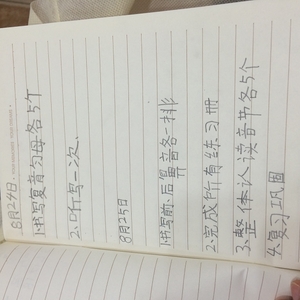 8月24日
1.书写复音韵母各5个
2.听写一次、
8月25日
1.书写前、后鼻音各一排
2.完成所有练习册
3.整体认读音节各5个
4.复习巩固